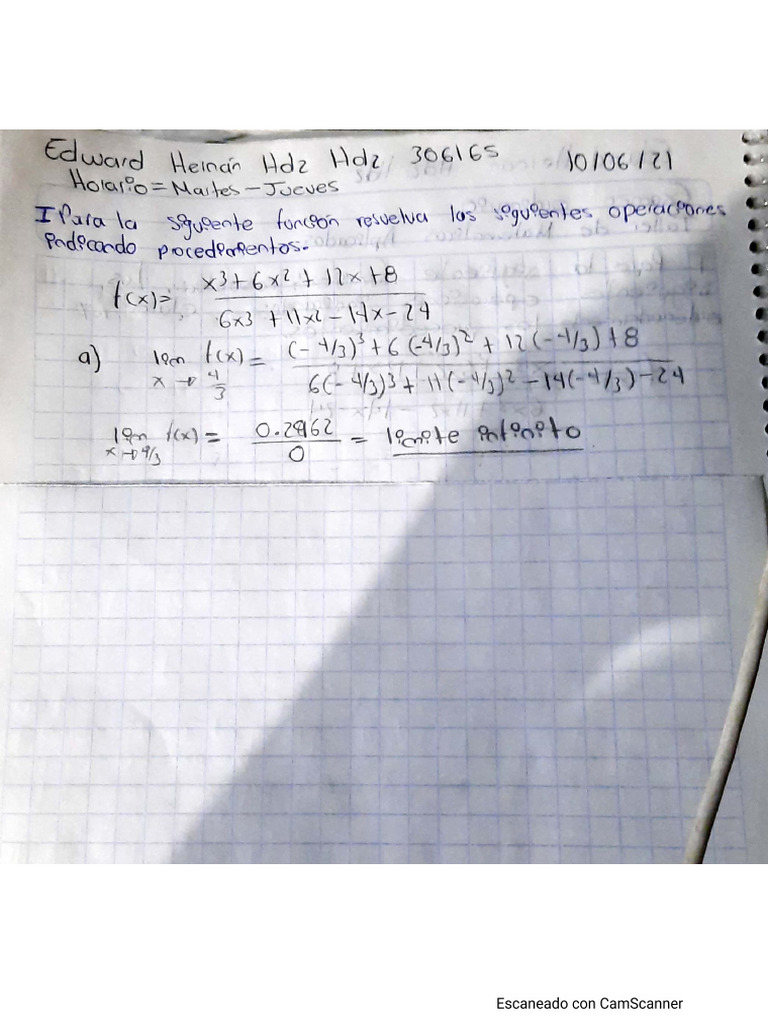 Edward Hernán Hdz Hdz 306165 10/06/21
Horario = Martes - Jueves
I Para la siguiente función resuelva las siguientes operaciones
indicando procedimientos.
f(x) = x3 + 6x2 + 12x + 8 / 6x3 + 11x2 - 14x - 24
a) lim x→4/3 f(x) = (-4/3)3 + 6(-4/3)2 + 12(-4/3) + 8 / 6(-4/3)3 + 11(-4/3)2 - 14(-4/3) - 24
lim x→4/3 f(x) = 0.2962 / 0 = limite infinito
Escaneado con CamScanner